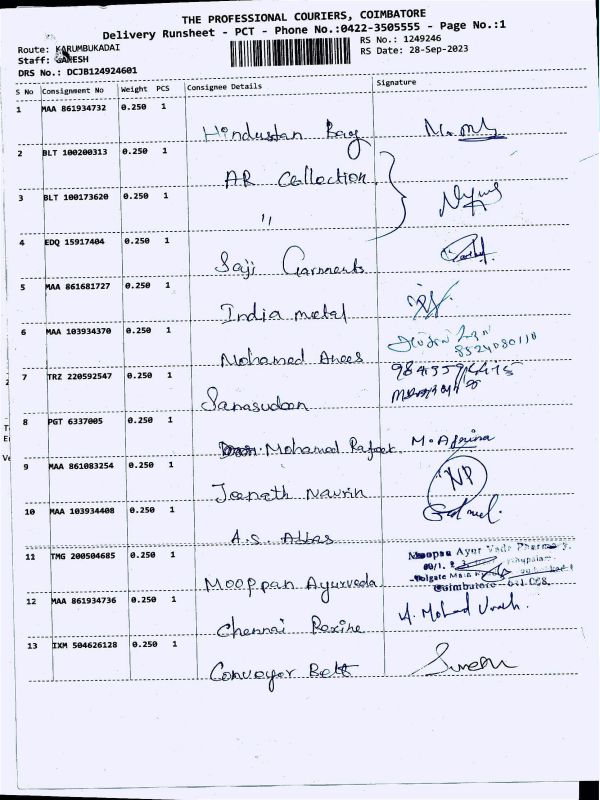 THE PROFESSIONAL COURIERS, COIMBATORE
Delivery Runsheet - PCT - Phone No.:0422-3505555 - Page No.:1
Route: KARUMBUKADAI
RS No.: 1249246
Staff: GANESH
RS Date: 28-Sep-2023
DRS No.: DCJB124924601
S No Consignment No Weight PCS Consignee Details Signature
1 MAA 861934732 0.250 1
Hindustan Bag
2 BLT 100200313 0.250 1
AR Collection
3 BLT 100173620 0.250 1
"
4 EDQ 15917404 0.250 1
Saji Garments
5 MAA 861681727 0.250 1
India metal
6 MAA 103934370 0.250 1
8524080110
Mohamed Anees
7 TRZ 220592547 0.250 1
Sanasudeen
8 PGT 6337005 0.250 1
Mohamed Rafeek M. Afrina
9 MAA 861083254 0.250 1
NP
Jannath Navrin
10 MAA 103934408 0.250 1
A.S. Abbas
11 TMG 200504685 0.250 1
Mooppan Ayur Vade Pharmacy.
Coimbatore - 641 008.
Mooppan Ayurveda
12 MAA 861934736 0.250 1
Chennai Rexine
13 IXM 504626128 0.250 1
Conveyor Belt